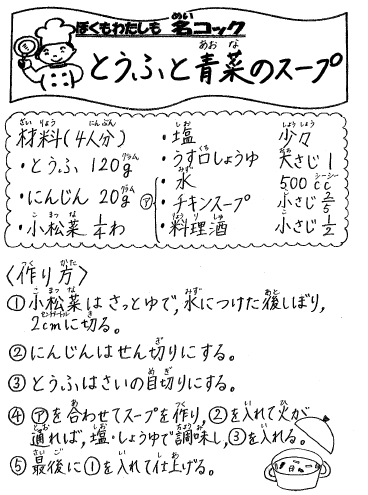 ぼくもわたしも 名コック
とうふと青菜のスープ
材料(4人分)
・とうふ 120g
・にんじん 20g
・小松菜 1/4わ
・塩 少々
・うす口しょうゆ 大さじ1
㋐
・水 500cc
・チキンスープ 小さじ2/5
・料理酒 小さじ1/2
〈作り方〉
①小松菜はさっとゆで,水につけた後しぼり,
2cmに切る。
②にんじんはせん切りにする。
③とうふはさいの目切りにする。
④㋐を合わせてスープを作り,②を入れて火が
通れば,塩・しょうゆで調味し,③を入れる。
⑤最後に①を入れて仕上げる。